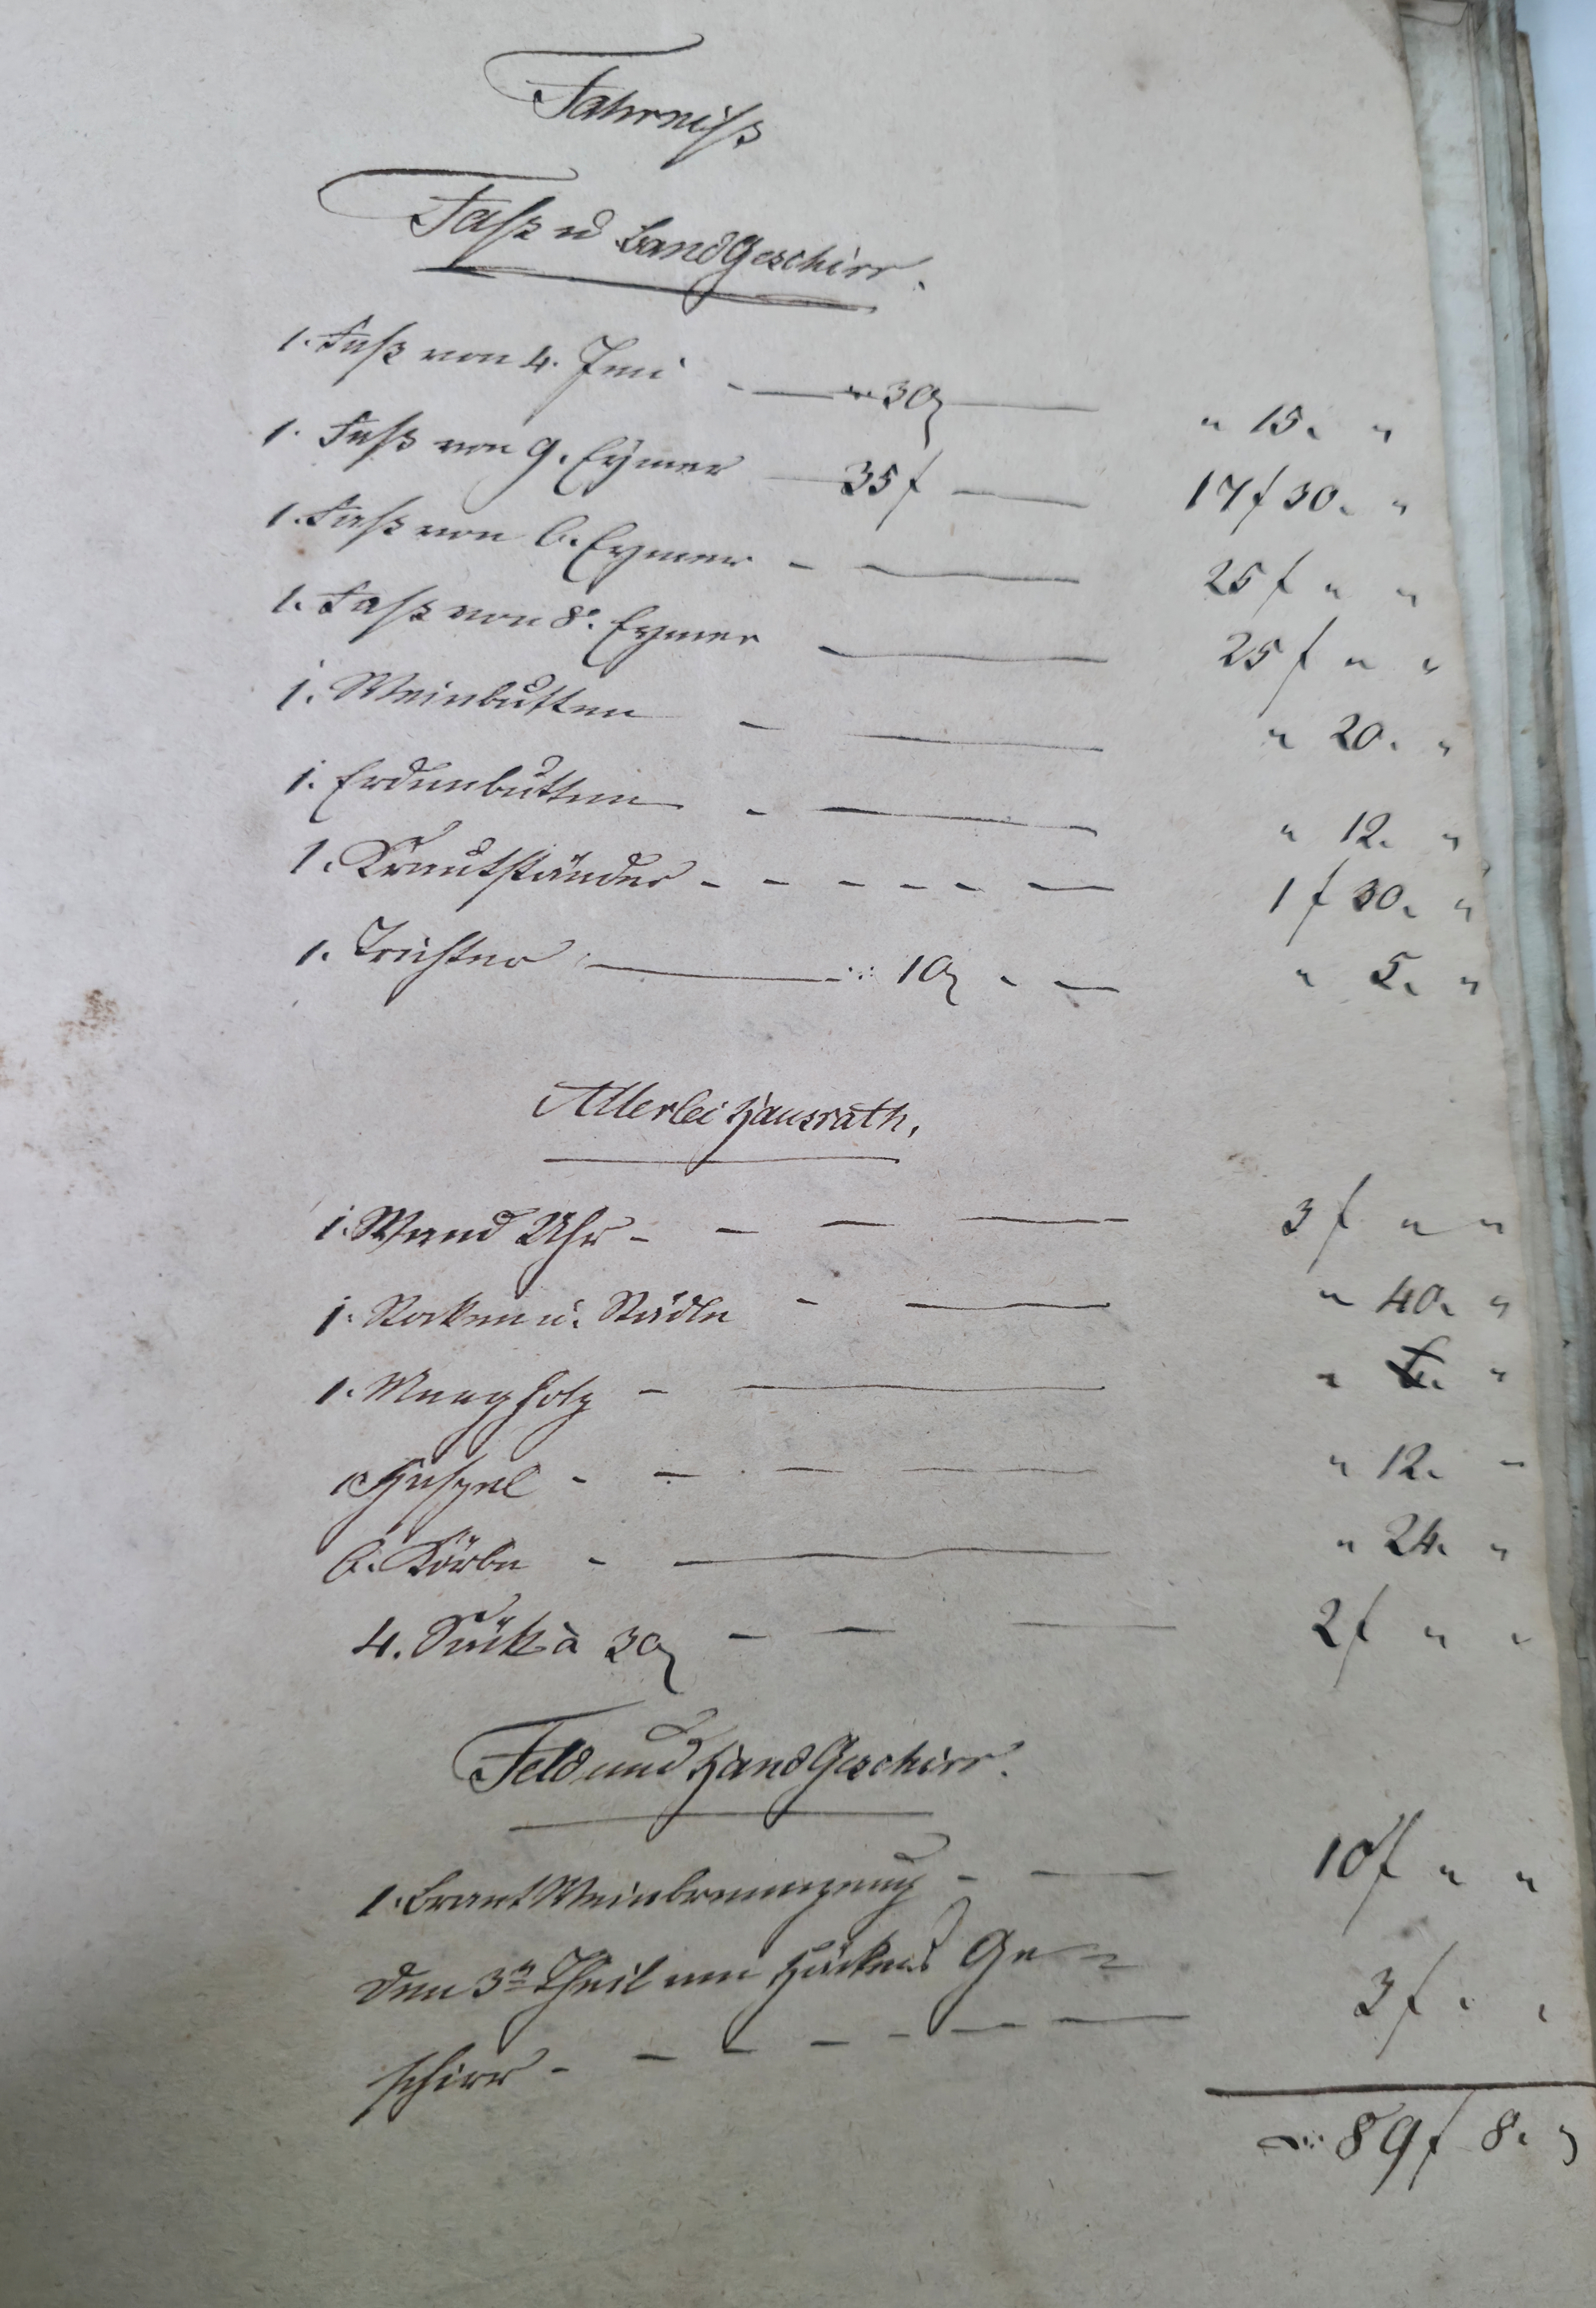 Fahrniß
Faß u Band Geschirr.
1. Faß von 4. Imi — " 30 — " 15. "
1. Faß von 9. Eymer — 35 f — 17 f 30. "
1. Faß von 6. Eymer — 25 f " "
1. Faß von 8. Eymer — 25 f " "
1. Weinbutten — " 20. "
1. Erdenbutten — " 12. "
1. Krautständer — 1 f 30. "
1. Trichter — 10 — " 5. "
Allerlei Hausrath.
1. Wand Uhr — 3 f " "
1. Rocken u. Rädle — " 40. "
1. Mang Holz — " "
1 Haspel — " 12. "
6. Körbe — " 24. "
4. Säck à 30 — 2 f " "
Feld und Hand Geschirr.
1. Brantweinbrennzeug — 10 f " "
Den 3n Theil von Ge-
schirr — 3 f " "
89 f 8.